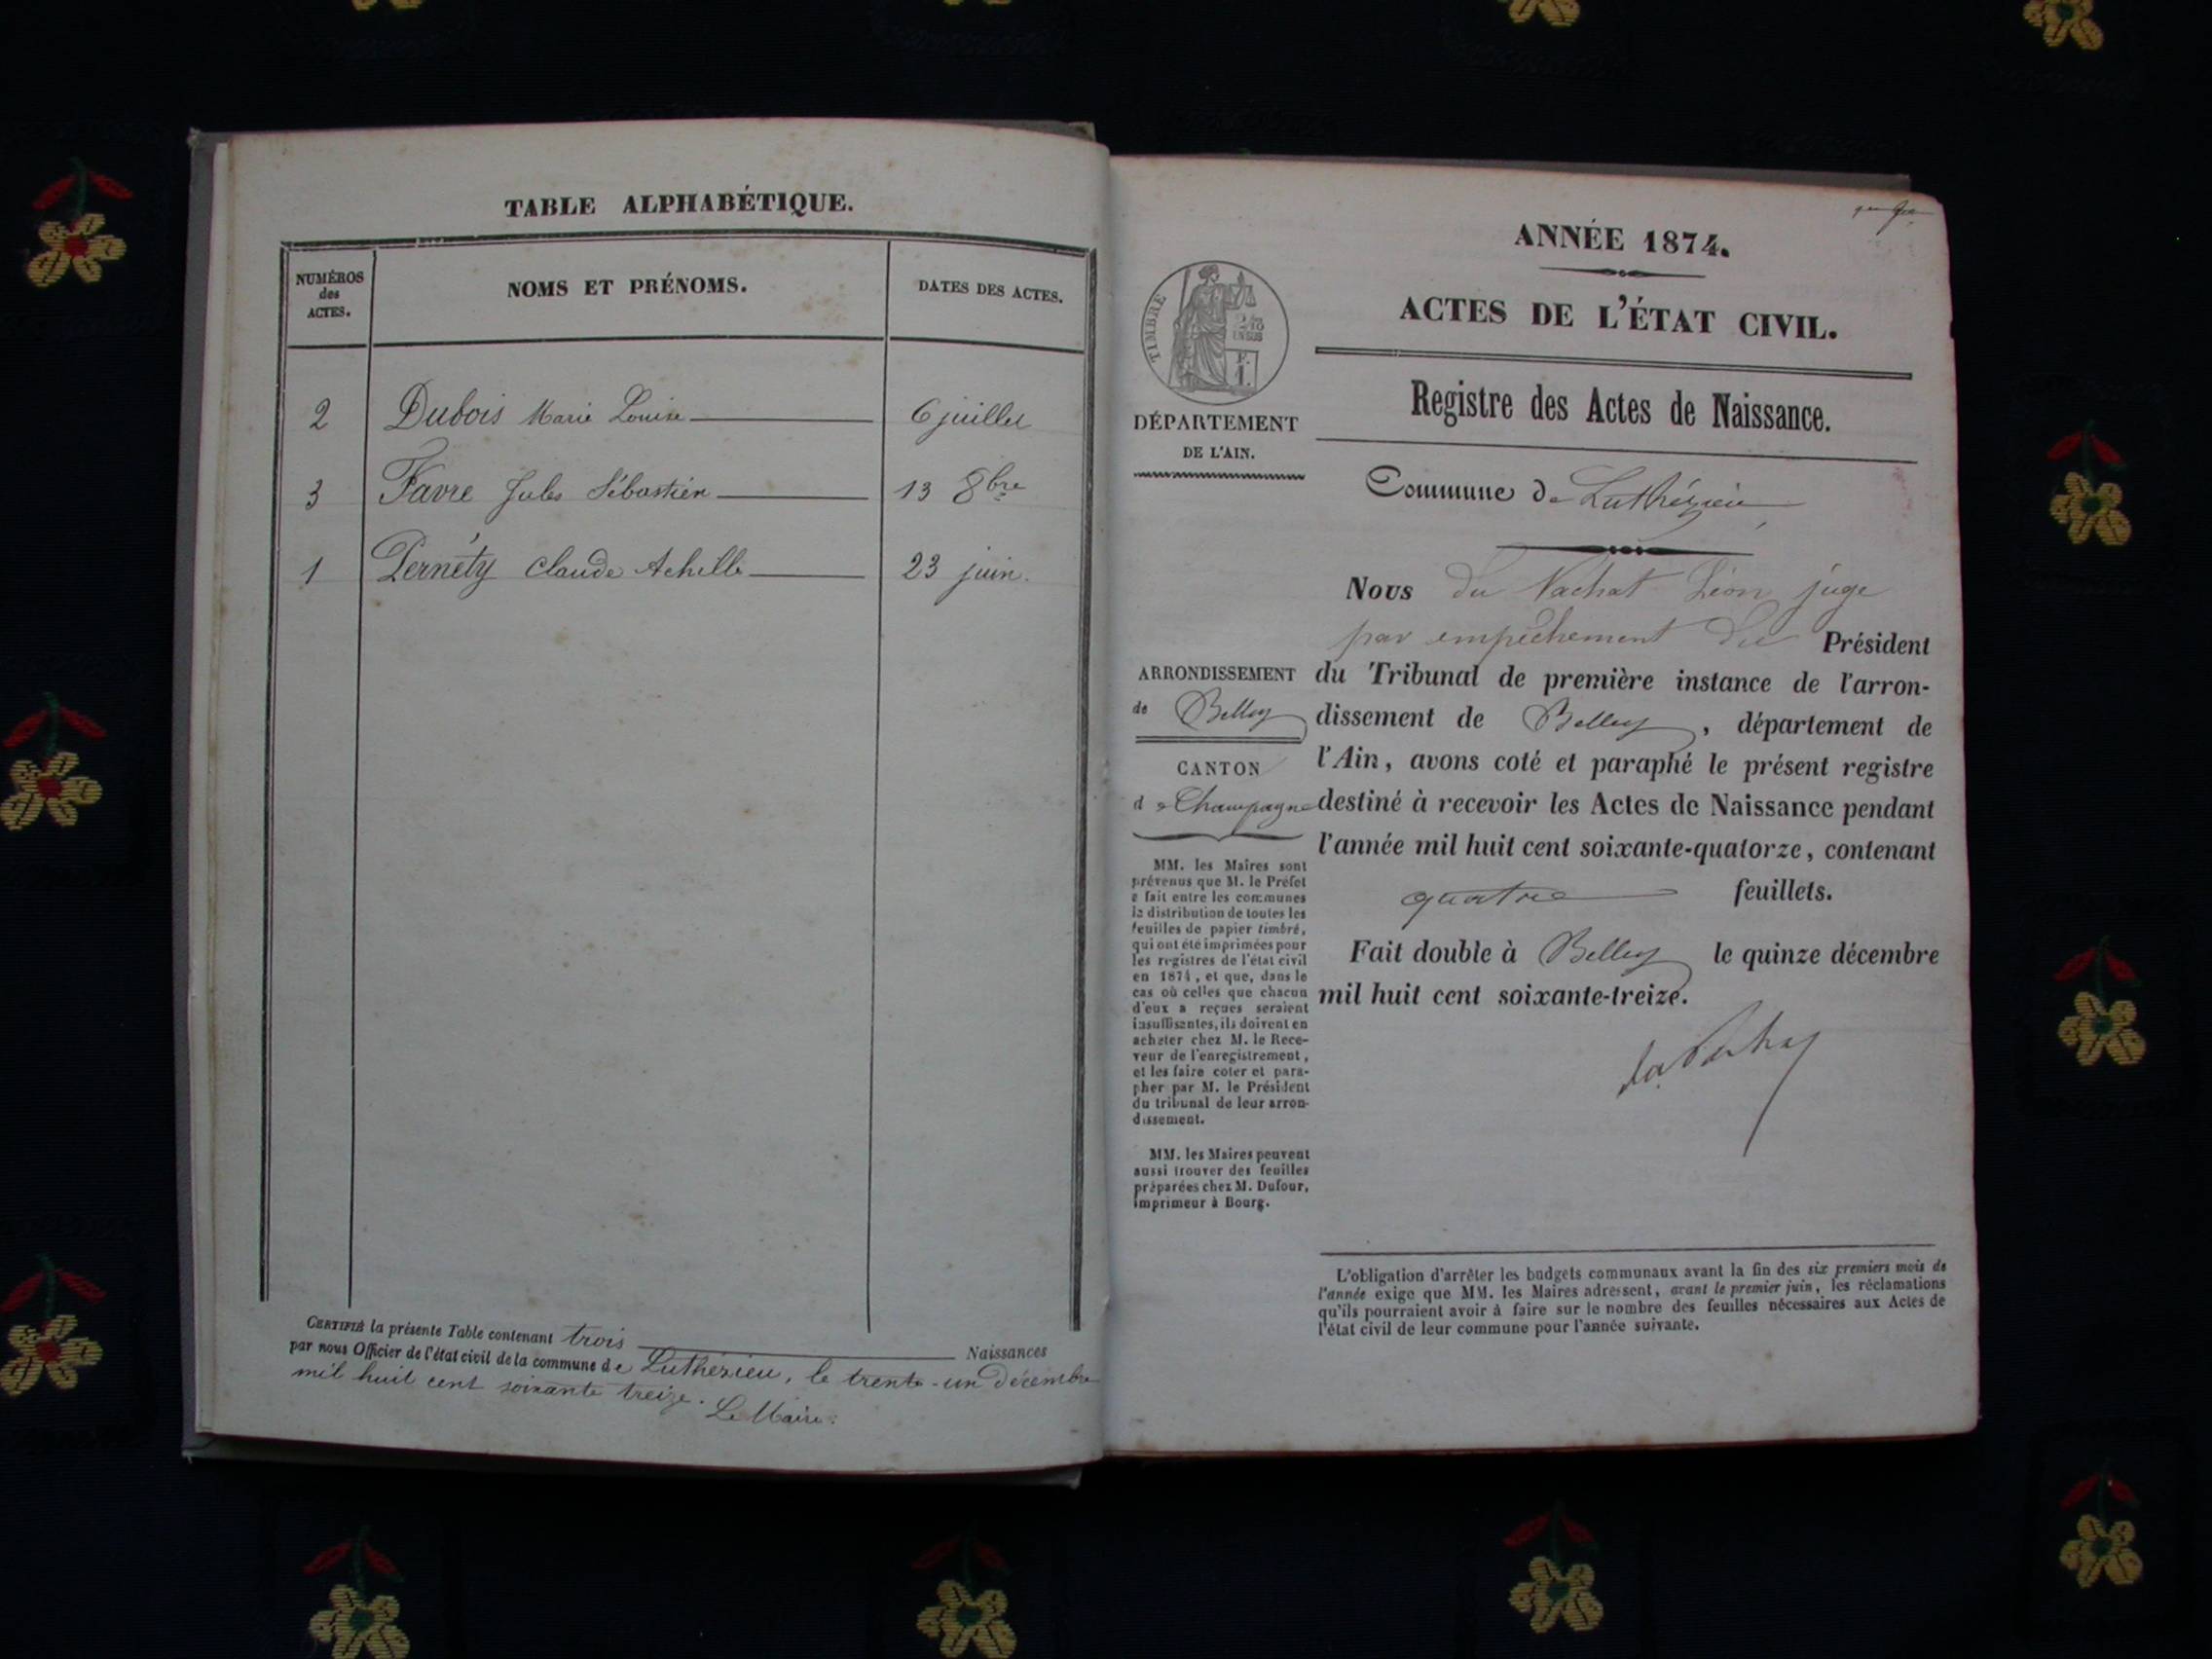 TABLE ALPHABÉTIQUE.
NUMÉROS
des
ACTES.
NOMS ET PRÉNOMS.
DATES DES ACTES.
2 Dubois Marie Louise 6 juillet
3 Favre Jules Sébastien 13 8bre
1 Pernéty Claude Achille 23 juin.
CERTIFIÉ la présente Table contenant trois Naissances
par nous Officier de l'état civil de la commune de Luthézieu, le trente-un Décembre
mil huit cent soixante treize.
Le Maire:
ANNÉE 1874.
ACTES DE L'ÉTAT CIVIL.
Registre des Actes de Naissance.
Commune de Luthézieu
TIMBRE
2/10
EN SUS
F.
1.
DÉPARTEMENT
DE L'AIN.
ARRONDISSEMENT
de Belley
CANTON
de Champagne
MM. les Maires sont
prévenus que M. le Préfet
a fait entre les communes
la distribution de toutes les
feuilles de papier timbré,
qui ont été imprimées pour
les registres de l'état civil
en 1874, et que, dans le
cas où celles que chacun
d'eux a reçues seraient
insuffisantes, ils doivent en
acheter chez M. le Rece-
veur de l'enregistrement,
et les faire coter et para-
pher par M. le Président
du tribunal de leur arron-
dissement.
MM. les Maires peuvent
aussi trouver des feuilles
préparées chez M. Dufour,
imprimeur à Bourg.
Nous du Vachat Léon juge
par empêchement du Président
du Tribunal de première instance de l'arron-
dissement de Belley, département de
l'Ain, avons coté et paraphé le présent registre
destiné à recevoir les Actes de Naissance pendant
l'année mil huit cent soixante-quatorze, contenant
quatre feuillets.
Fait double à Belley le quinze décembre
mil huit cent soixante-treize.
L'obligation d'arrêter les budgets communaux avant la fin des six premiers mois de
l'année exige que MM. les Maires adressent, avant le premier juin, les réclamations
qu'ils pourraient avoir à faire sur le nombre des feuilles nécessaires aux Actes de
l'état civil de leur commune pour l'année suivante.